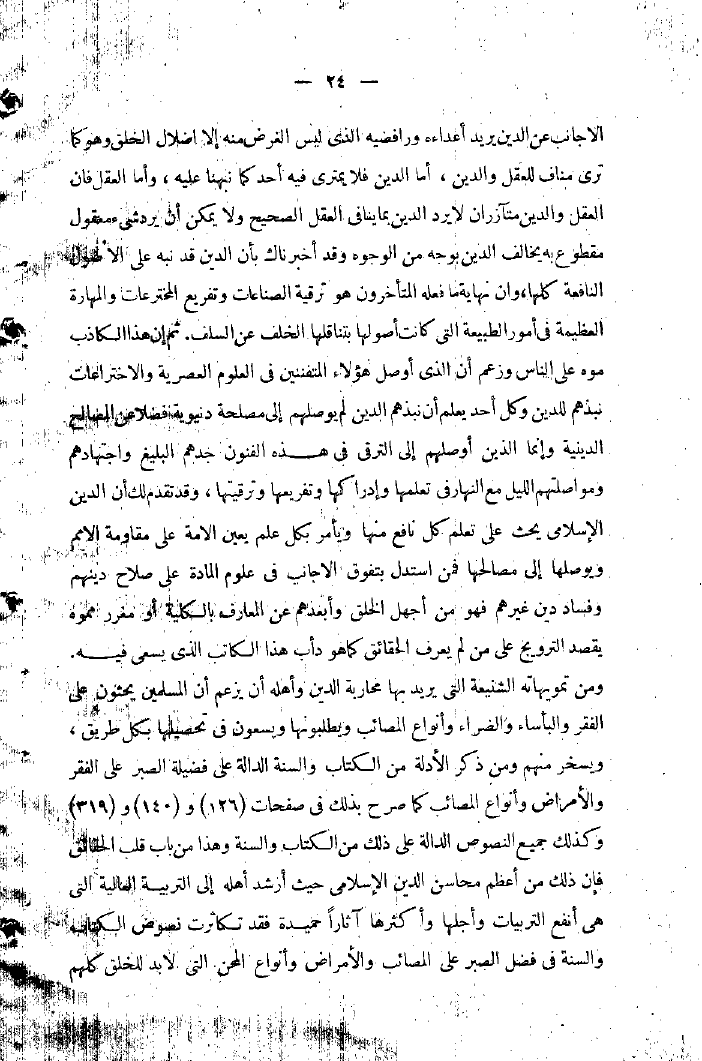 — ٢٤ —
الاجانب عن الدين يريد أعداءه ورافضيه الذى ليس الغرض منه إلا اضلال الخلق وهو كما
ترى مناف للعقل والدين ، أما الدين فلا يمترى فيه أحد كما نبهنا عليه ، وأما العقل فان
العقل والدين متآزران لا يرد الدين بما ينافى العقل الصحيح ولا يمكن أن يرد شىء معقول
مقطوع به يخالف الدين بوجه من الوجوه وقد أخبرناك بأن الدين قد نبه على الأصول
النافعة كلها، وان نهاية ما فعله المتأخرون هو ترقية الصناعات وتفريع المخترعات والمهارة
العظيمة فى أمور الطبيعة التى كانت أصولها يتناقلها الخلف عن السلف. ثم إن هذا الكاذب
موه على الناس وزعم أن الذى أوصل هؤلاء المتفننين فى العلوم العصرية والاختراعات
نبذهم للدين وكل أحد يعلم أن نبذهم الدين لم يوصلهم إلى مصلحة دنيوية فضلا عن المصالح
الدينية وإنما الذين أوصلهم إلى الترقى فى هذه الفنون جدهم البليغ واجتهادهم
ومواصلتهم الليل مع النهار فى تعلمها وإدراكها وتفريعها وترقيتها ، وقد تقدم لك أن الدين
الإسلامى يحث على تعلم كل نافع منها ويأمر بكل علم يعين الامة على مقاومة الامم
ويوصلها إلى مصالحها فمن استدل بتفوق الاجانب فى علوم المادة على صلاح دينهم
وفساد دين غيرهم فهو من أجهل الخلق وأبعدهم عن المعارف بالكلية أو مغرر مموه
يقصد الترويج على من لم يعرف الحقائق كما هو دأب هذا الكاتب الذى يسعى فيه.
ومن تمويهاته الشنيعة التى يريد بها محاربة الدين وأهله أن يزعم أن المسلمين يحثون على
الفقر والبأساء والضراء وأنواع المصائب ويطلبونها ويسعون فى تحصيلها بكل طريق ،
ويسخر منهم ومن ذكر الأدلة من الكتاب والسنة الدالة على فضيلة الصبر على الفقر
والأمراض وأنواع المصائب كما صرح بذلك فى صفحات (١٢٦) و (١٤٠) و (٣١٩)
وكذلك جميع النصوص الدالة على ذلك من الكتاب والسنة وهذا من باب قلب الحقائق
فإن ذلك من أعظم محاسن الدين الإسلامى حيث أرشد أهله إلى التربية العالية التى
هى أنفع التربيات وأجلها وأكثرها آثاراً حميدة فقد تكاثرت نصوص الكتاب
والسنة فى فضل الصبر على المصائب والأمراض وأنواع المحن التى لابد للخلق كلهم